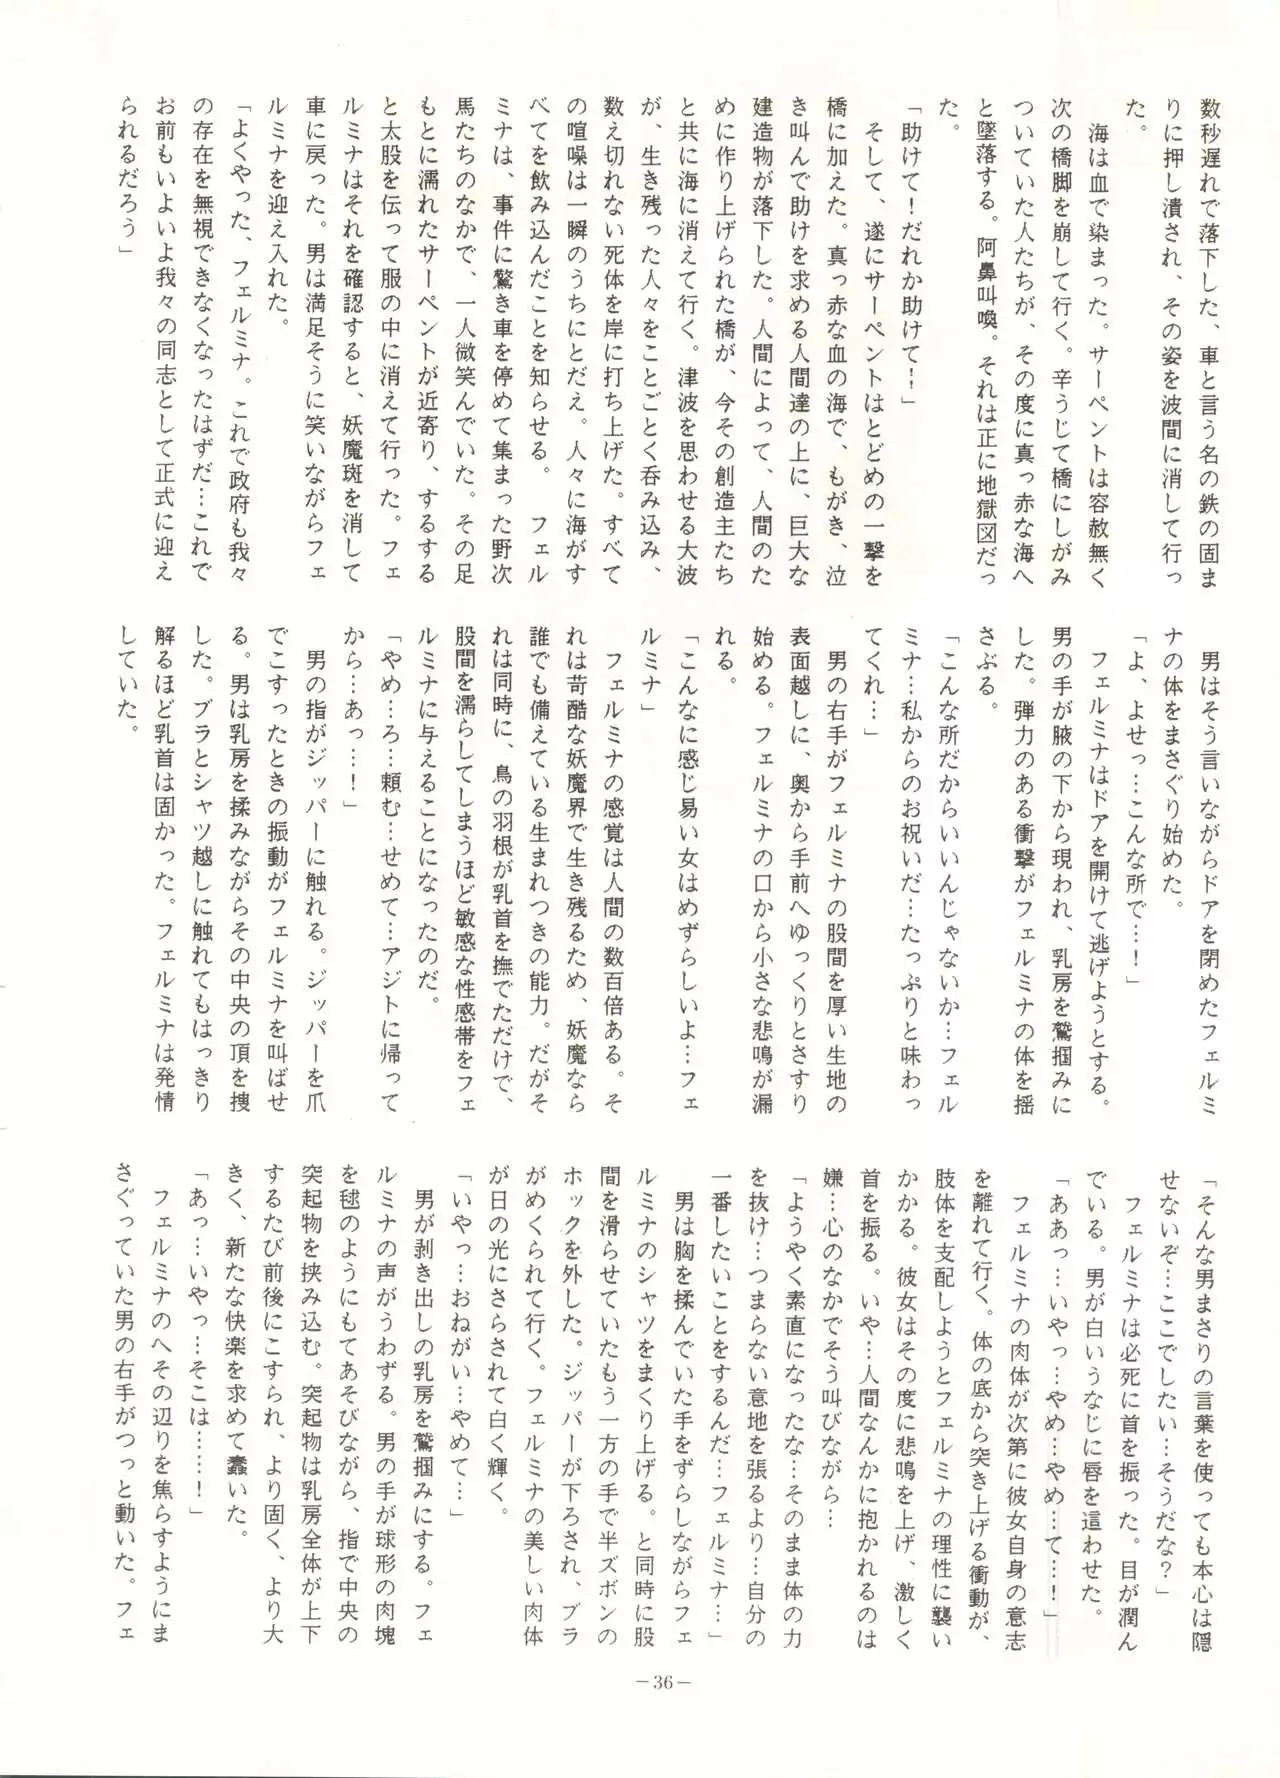 数秒遅れで落下した、車と言う名の鉄の固ま
りに押し潰され、その姿を波間に消して行っ
た。
　海は血で染まった。サーペントは容赦無く
次の橋脚を崩して行く。辛うじて橋にしがみ
ついていた人たちが、その度に真っ赤な海へ
と墜落する。阿鼻叫喚。それは正に地獄図だっ
た。
「助けて！だれか助けて！」
　そして、遂にサーペントはとどめの一撃を
橋に加えた。真っ赤な血の海で、もがき、泣
き叫んで助けを求める人間達の上に、巨大な
建造物が落下した。人間によって、人間のた
めに作り上げられた橋が、今その創造主たち
と共に海に消えて行く。津波を思わせる大波
が、生き残った人々をことごとく呑み込み、
数え切れない死体を岸に打ち上げた。すべて
の喧噪は一瞬のうちにとだえ。人々に海がす
べてを飲み込んだことを知らせる。　フェル
ミナは、事件に驚き車を停めて集まった野次
馬たちのなかで、一人微笑んでいた。その足
もとに濡れたサーペントが近寄り、するする
と太股を伝って服の中に消えて行った。フェ
ルミナはそれを確認すると、妖魔斑を消して
車に戻った。男は満足そうに笑いながらフェ
ルミナを迎え入れた。
「よくやった、フェルミナ。これで政府も我々
の存在を無視できなくなったはずだ…これで
お前もいよいよ我々の同志として正式に迎え
られるだろう」
　男はそう言いながらドアを閉めたフェルミ
ナの体をまさぐり始めた。
「よ、よせっ…こんな所で…！」
　フェルミナはドアを開けて逃げようとする。
男の手が腋の下から現われ、乳房を鷲掴みに
した。弾力のある衝撃がフェルミナの体を揺
さぶる。
「こんな所だからいいんじゃないか…フェル
ミナ…私からのお祝いだ…たっぷりと味わっ
てくれ…」
　男の右手がフェルミナの股間を厚い生地の
表面越しに、奥から手前へゆっくりとさすり
始める。フェルミナの口から小さな悲鳴が漏
れる。
「こんなに感じ易い女はめずらしいよ…フェ
ルミナ」
　フェルミナの感覚は人間の数百倍ある。そ
れは苛酷な妖魔界で生き残るため、妖魔なら
誰でも備えている生まれつきの能力。だがそ
れは同時に、鳥の羽根が乳首を撫でただけで、
股間を濡らしてしまうほど敏感な性感帯をフェ
ルミナに与えることになったのだ。
「やめ…ろ…頼む…せめて…アジトに帰って
から…あっ…！」
　男の指がジッパーに触れる。ジッパーを爪
でこすったときの振動がフェルミナを叫ばせ
る。男は乳房を揉みながらその中央の頂を捜
した。ブラとシャツ越しに触れてもはっきり
解るほど乳首は固かった。フェルミナは発情
していた。
「そんな男まさりの言葉を使っても本心は隠
せないぞ…ここでしたい…そうだな？」
　フェルミナは必死に首を振った。目が潤ん
でいる。男が白いうなじに唇を這わせた。
「ああっ…いやっ…やめ…やめ…て…！」
　フェルミナの肉体が次第に彼女自身の意志
を離れて行く。体の底から突き上げる衝動が、
肢体を支配しようとフェルミナの理性に襲い
かかる。彼女はその度に悲鳴を上げ、激しく
首を振る。いや…人間なんかに抱かれるのは
嫌…心のなかでそう叫びながら…
「ようやく素直になったな…そのまま体の力
を抜け…つまらない意地を張るより…自分の
一番したいことをするんだ…フェルミナ…」
　男は胸を揉んでいた手をずらしながらフェ
ルミナのシャツをまくり上げる。と同時に股
間を滑らせていたもう一方の手で半ズボンの
ホックを外した。ジッパーが下ろされ、ブラ
がめくられて行く。フェルミナの美しい肉体
が日の光にさらされて白く輝く。
「いやっ…おねがい…やめて…」
　男が剥き出しの乳房を鷲掴みにする。フェ
ルミナの声がうわずる。男の手が球形の肉塊
を毬のようにもてあそびながら、指で中央の
突起物を挟み込む。突起物は乳房全体が上下
するたび前後にこすられ、より固く、より大
きく、新たな快楽を求めて蠢いた。
「あっ…いやっ…そこは……！」
　フェルミナのへその辺りを焦らすようにま
さぐっていた男の右手がつっと動いた。フェ
－36－